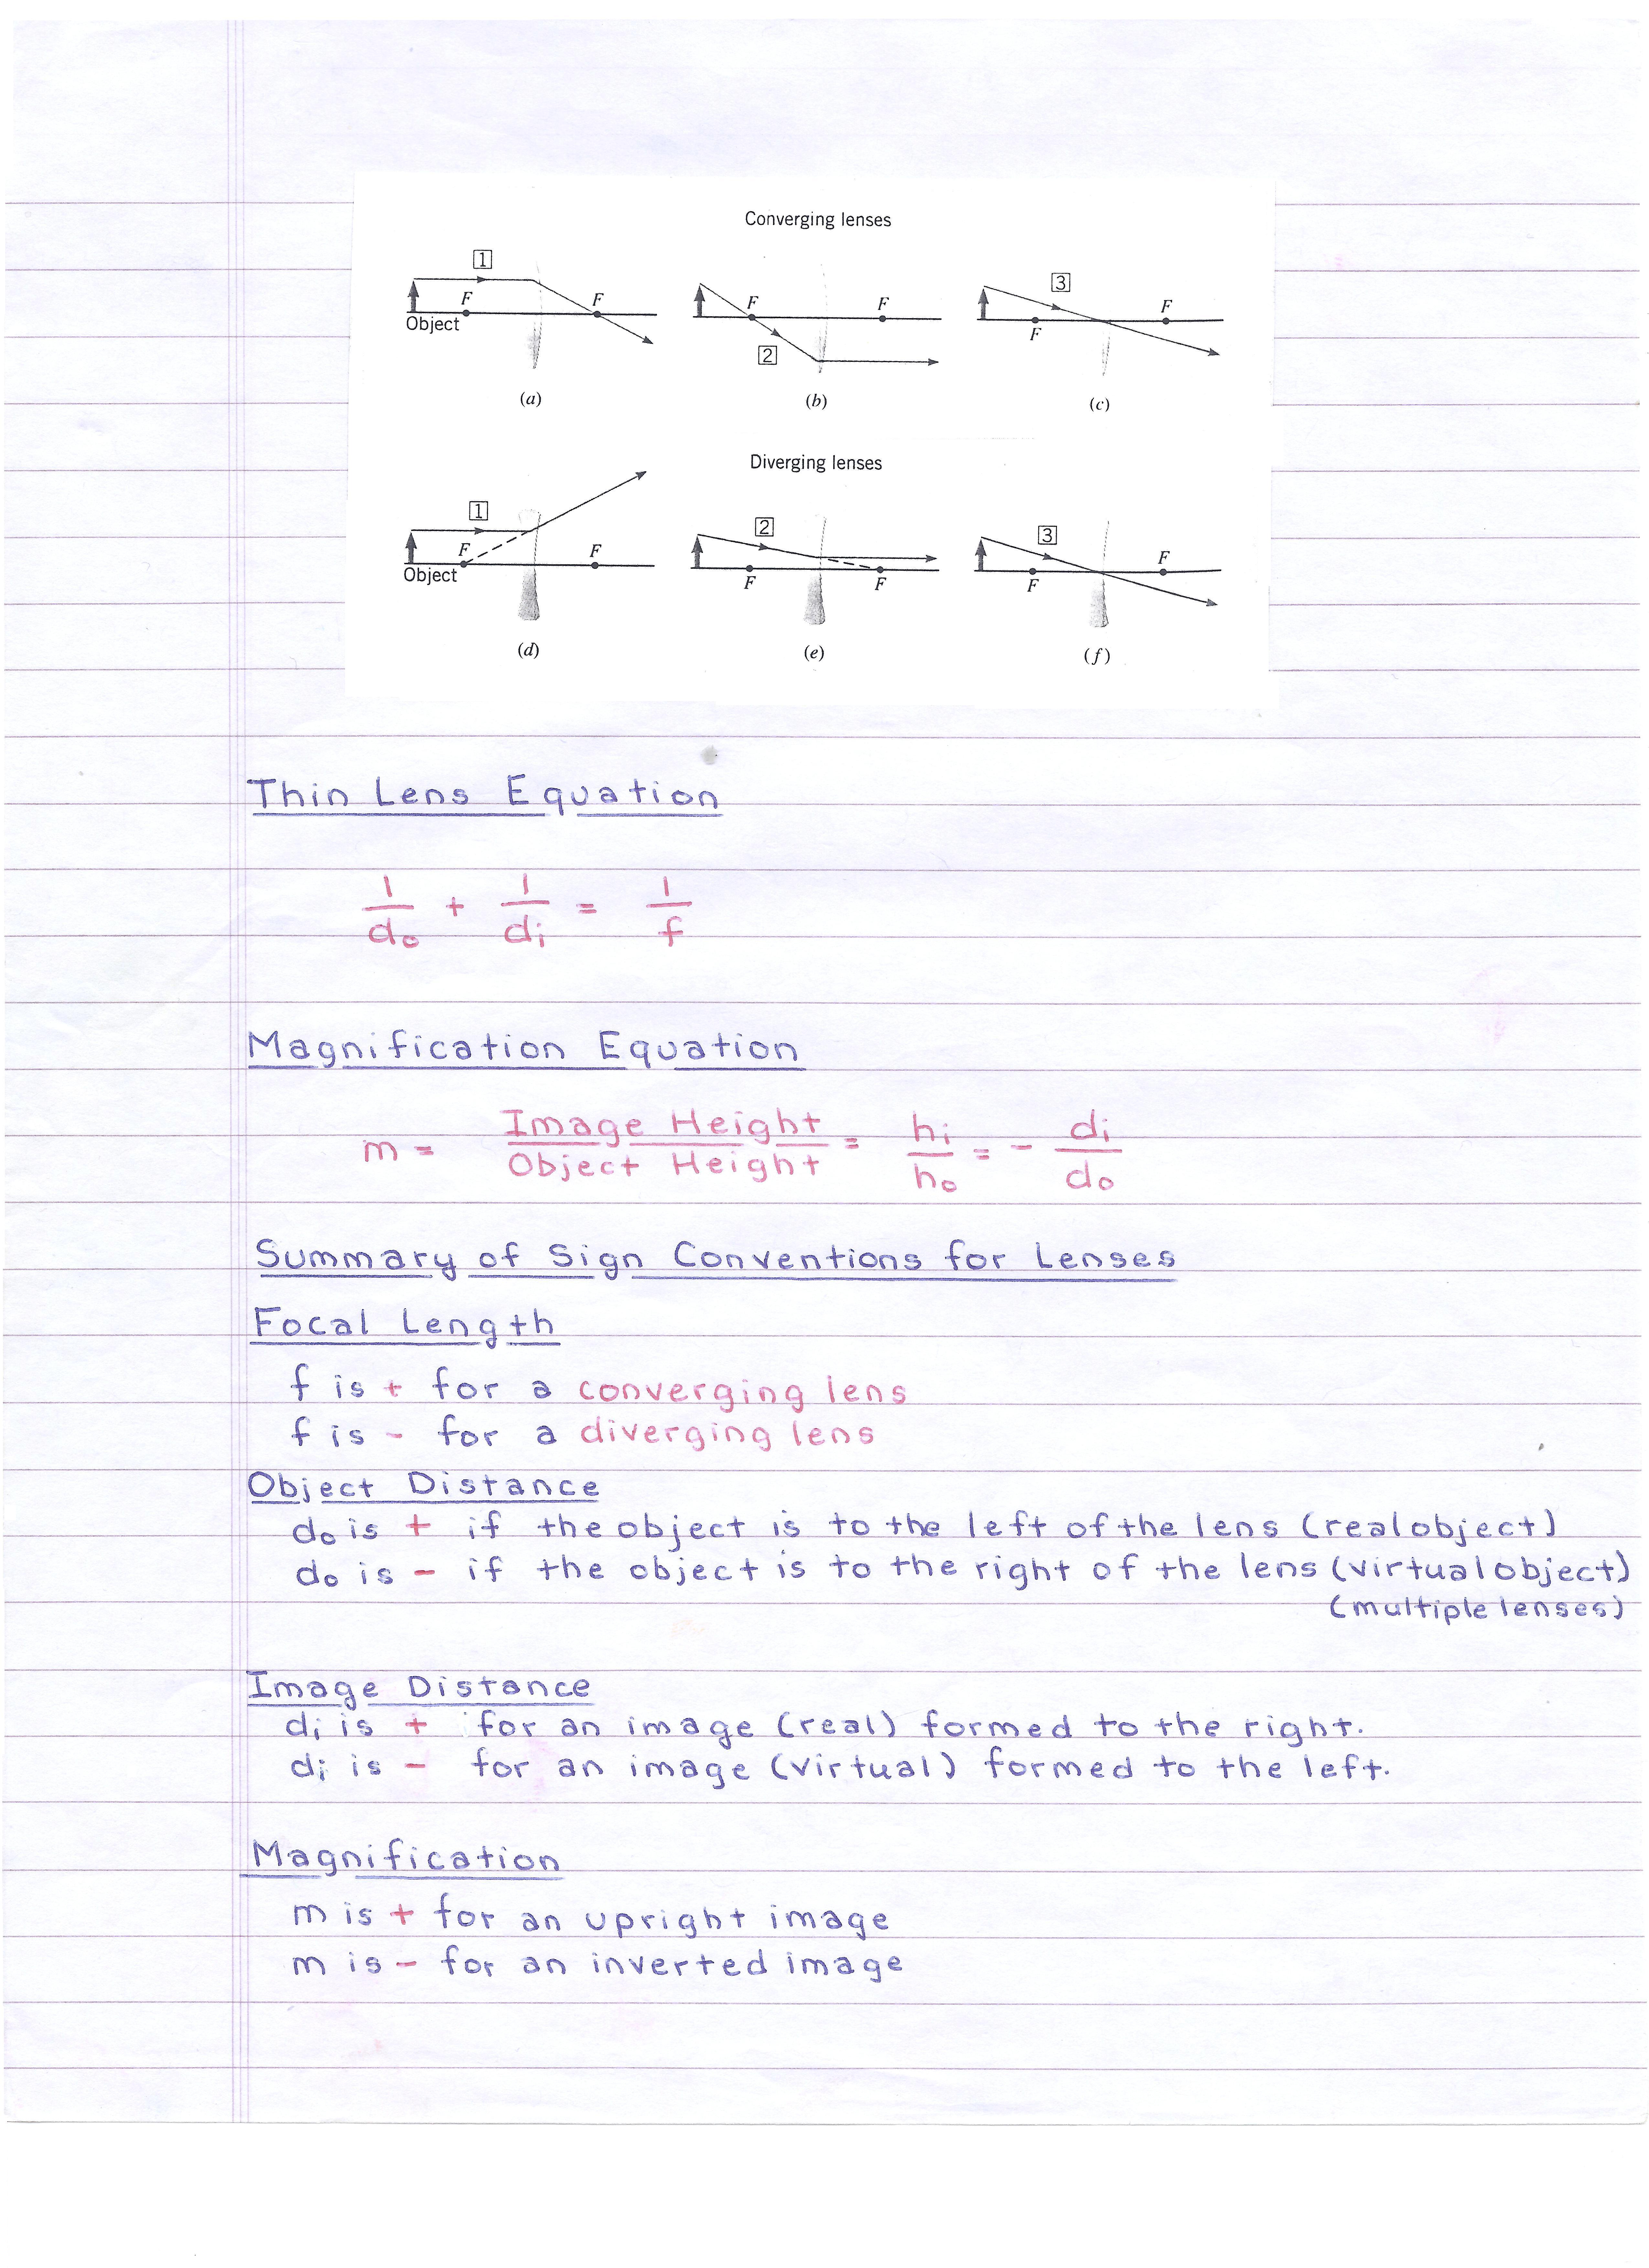 Converging lenses
1 2 3
F F F F F F
Object
(a) (b) (c)
Diverging lenses
1 2 3
F F F F F F
Object
(d) (e) (f)
Thin Lens Equation
1/do + 1/di = 1/f
Magnification Equation
m = Image Height/Object Height = hi/ho = - di/do
Summary of Sign Conventions for Lenses
Focal Length
f is + for a converging lens
f is - for a diverging lens
Object Distance
do is + if the object is to the left of the lens (real object)
do is - if the object is to the right of the lens (virtual object)
(multiple lenses)
Image Distance
di is + for an image (real) formed to the right.
di is - for an image (virtual) formed to the left.
Magnification
m is + for an upright image
m is - for an inverted image